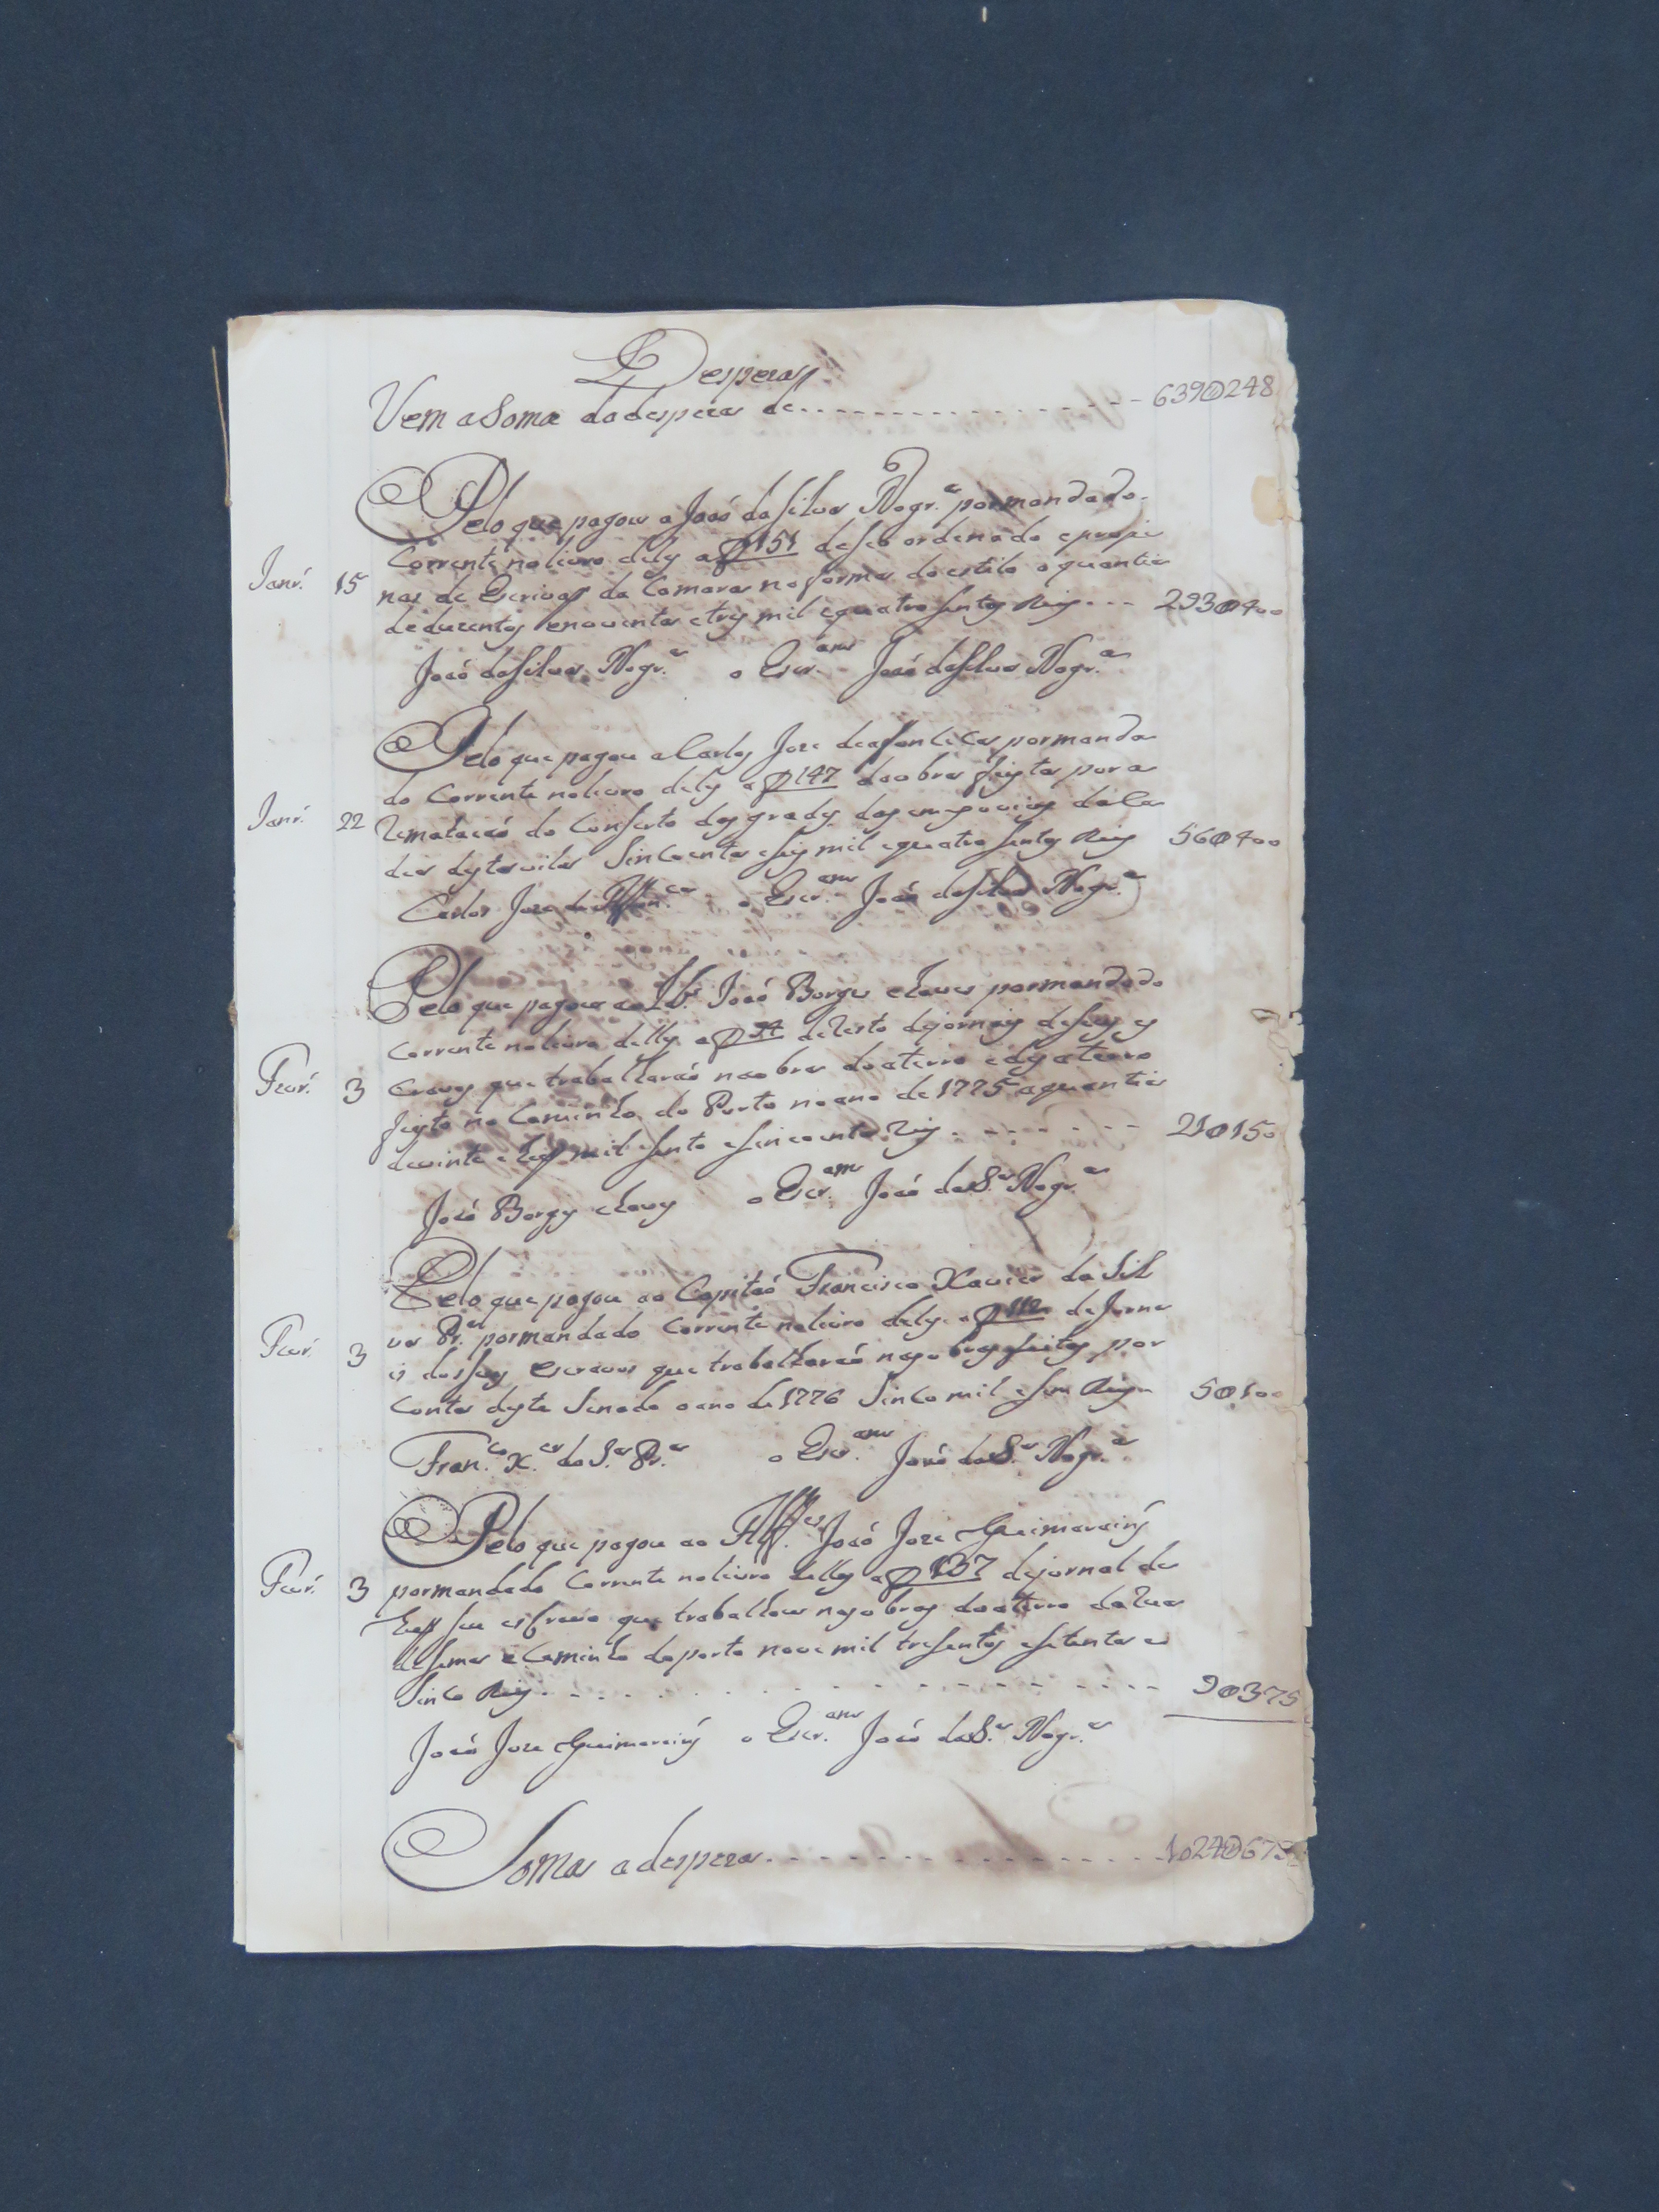 Despeza
Vem a Soma da despeza de - - - - 639@248
Pelo que pagou a João da Silva Nogr.ª por mandado
Corrente no livro delles a f 151 de seo ordenado e propi
Janr.º 15 nas de Escrivaõ da Camara na forma do estilo a quantia
de duzentos e noventa e tres mil e quatro sentos Reis - - - 293@400
João da Silva Nogr.ª o Escr.am João da Silva Nogr.ª
Pelo que pagou a Carlos Joze por manda
do Corrente no livro delles a f 147 da obra feita por a
Janr.º 22 Rematacaõ do Conserto das grades das da Ca
dea desta vila Sincoenta e seis mil e quatro sentos Reis 56@400
Carlos Joze o Escr.am João da Silva Nogr.ª
Pelo que pagou ao João Borges chaves por mandado
Corrente no livro delles a f 94 de Resto de jornais de seus es
Fevr.º 3 Cravos que trabalharaõ na obra do aterro e dos aterro
feito no Caminho do Porto no ano de 1775 a quantia
de vinte e hum mil e sento e sincoenta Reis - - - - 21@150
João Borges chaves o Escr.am João da S.ª Nogr.ª
Pelo que pagou ao Capitaõ Francisco Xavier da Sil
va Pr.ª por mandado Corrente no livro delles a f 112 de Jorna
Fevr.º 3 is dos seus escravos que trabalharaõ nas obras feitas por
Conta deste Senado o ano de 1776 Sinco mil e sem Reis 5@100
Fran.co X.er da S.ª Pr.ª o Escr.am João da S.ª Nogr.ª
Pelo que pagou ao Alff.es João Joze Guimaraiñs
Fevr.º 3 por mandado Corrente no livro delles a f 137 de jornal de
hum seu escravo que trabalhou nas obras do aterro da Rua
e Caminho do porto nove mil tresentos e setenta e
Sinco Reis - - - - 9@375
João Joze Guimaraiñs o Escr.am João da S.ª Nogr.ª
Soma a despeza - - - - 1024@673